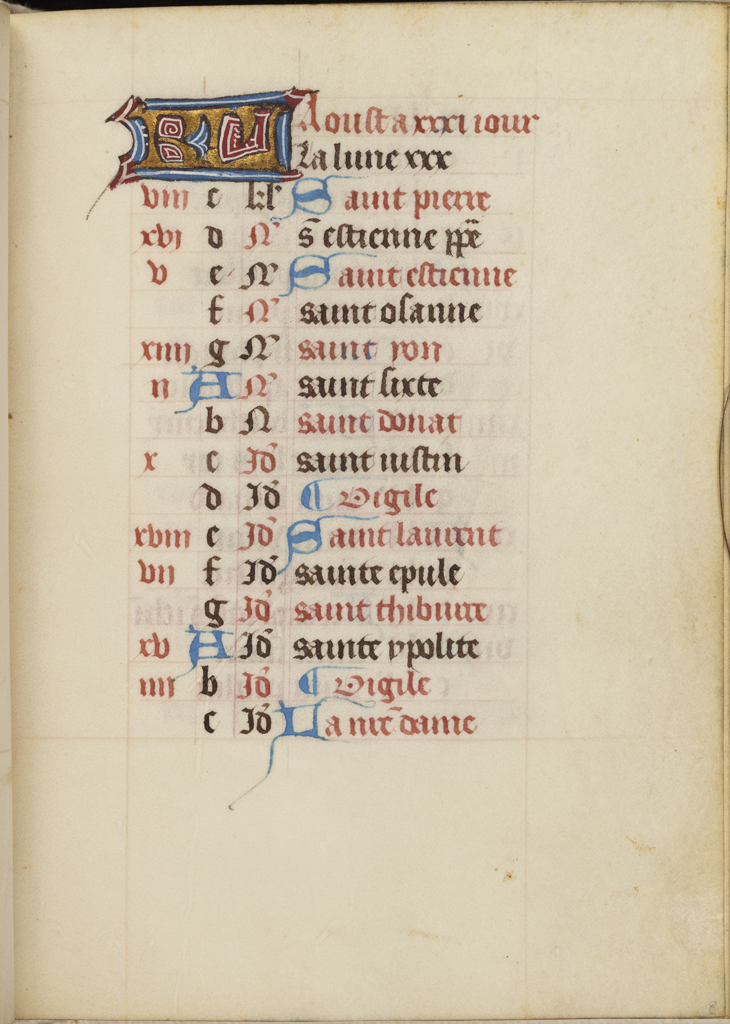 KL Aoust a xxxi iour
La lune xxx
viii c kl' Saint pierre
xvi d N' s̄ estienne ppe
v e N' Saint estienne
f N' saint osanne
xiiii g N' saint yon
ii A N' saint sixte
b N saint donat
x c Id' saint iustin
d Id' Vigile
xviii e Id' Saint laurent
vii f Id' sainte epule
g Id' saint thiburre
xv A Id' sainte ypolite
iiii b Id' Vigile
c Id' La nr̄e dame